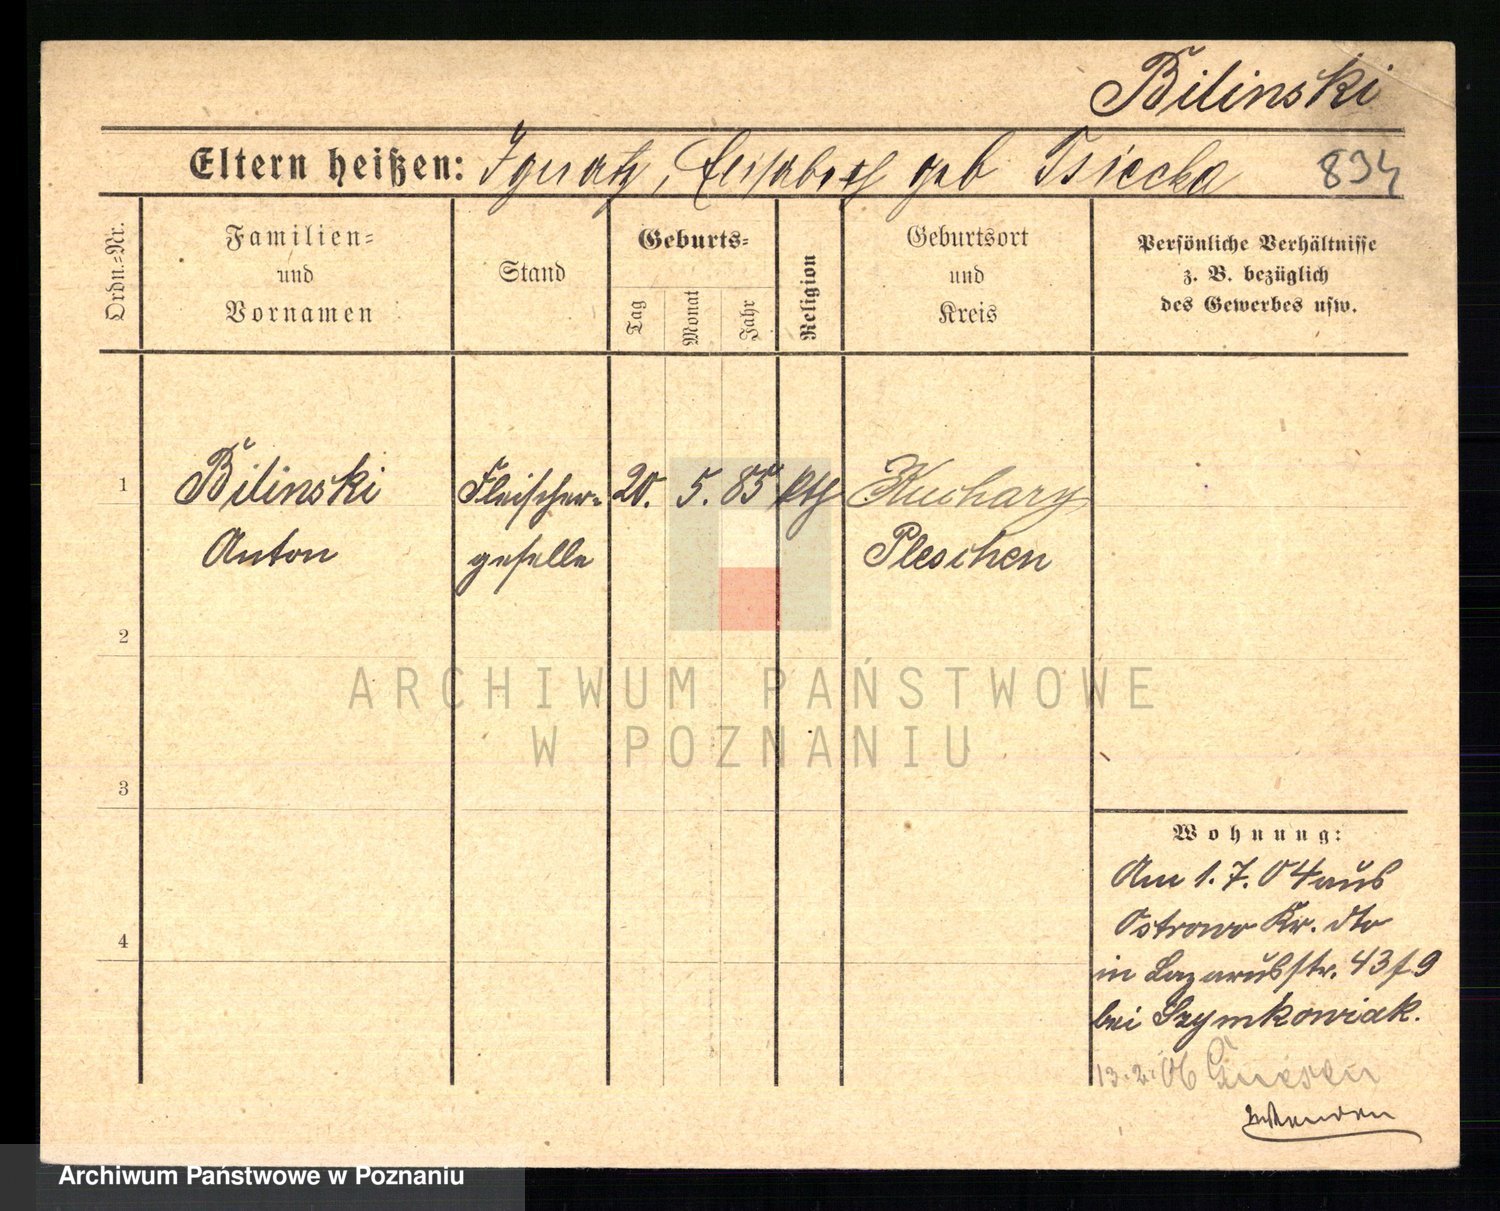 Bilinski
Eltern heißen: Ignatz, Elisabeth geb Tsiecka
834
Ordn.-Nr.
Familien- und Vornamen
Stand
Geburts-
Tag
Monat
Jahr
Religion
Geburtsort und Kreis
Persönliche Verhältnisse
z. B. bezüglich
des Gewerbes usw.
1 Bilinski Fleischer- 20. 5. 85 kth Kuchary
Anton geselle Pleschen
2
ARCHIWUM PAŃSTWOWE
W POZNANIU
3
Wohnung:
Am 1.7.04 aus
Ostrowo Kr. dto
4
in Lazarusstr. 43 f 9
bei Szymkowiak.
13.2.06 Gnesen
Wenden
Archiwum Państwowe w Poznaniu